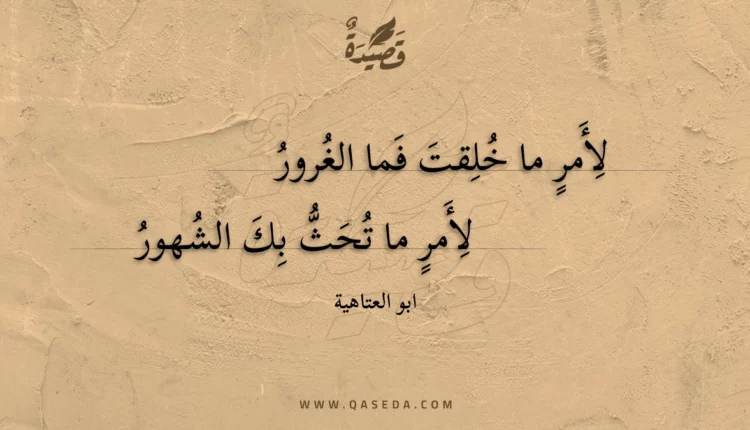 قَصِيدَةٌ
لِأَمرٍ ما خُلِقتَ فَما الغُرورُ
لِأَمرٍ ما تُحَثُّ بِكَ الشُهورُ
ابو العتاهية
WWW.QASEDA.COM